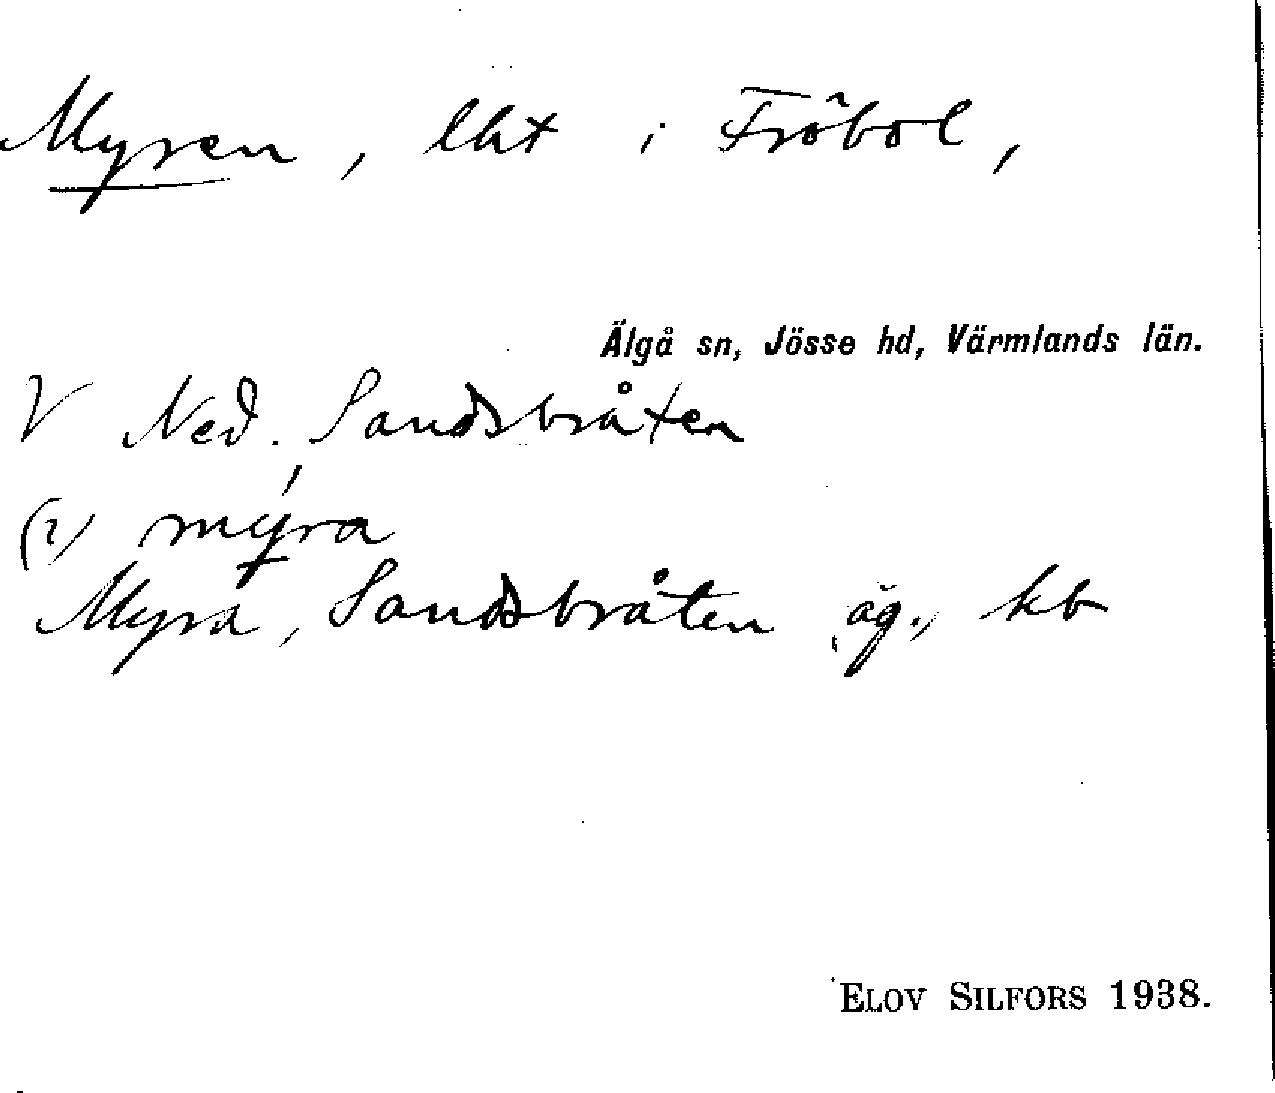 Myren, lht i Fröbol,
Älgå sn, Jösse hd, Värmlands län.
V Ned. Sandsbråten
(i) myra
Myra, Sandsbråten äg., kb
ELOV SILFORS 1938.